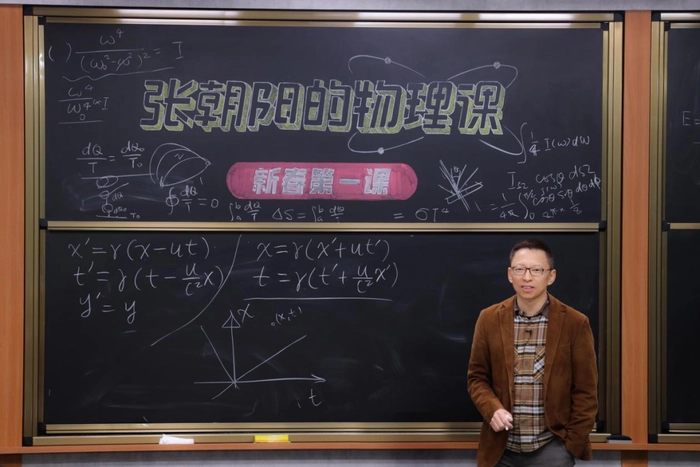 ( ) ω⁴/(ω₀²-ω²)² = I
ω⁴/ω₀⁴ I
张朝阳的物理课
新春第一课
dQ/T = dQ₀/T₀
∮ dQ/T = 0
∫ₐᵇ dQ/T
ΔS = ∫ₐᵇ dQ/T
= σT⁴
I(ω)dω
cosθ dΩ
E =
x' = γ(x-ut)
t' = γ(t - u/c² x)
y' = y
x = γ(x'+ut')
t = γ(t' + u/c² x')
x
(x,t)
t